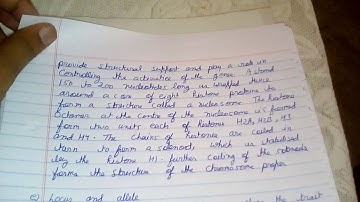 provide structural support and play a role in
controlling the activities of the genes. A strand
150 to 200 nucleotides long is wrapped twice
around a core of eight histone proteins to
form a structure called a nucleosome. The histone
octamer at the centre of the nucleosome is formed
form two units each of histones H2A, H2B, H3
and H4. The chains of histones are coiled in
turn to form a solenoid, which is stabilised
by the histone H1. Further coiling of the solenoids
forms the structure of the chromosome proper
c) Locus and allele
the trait